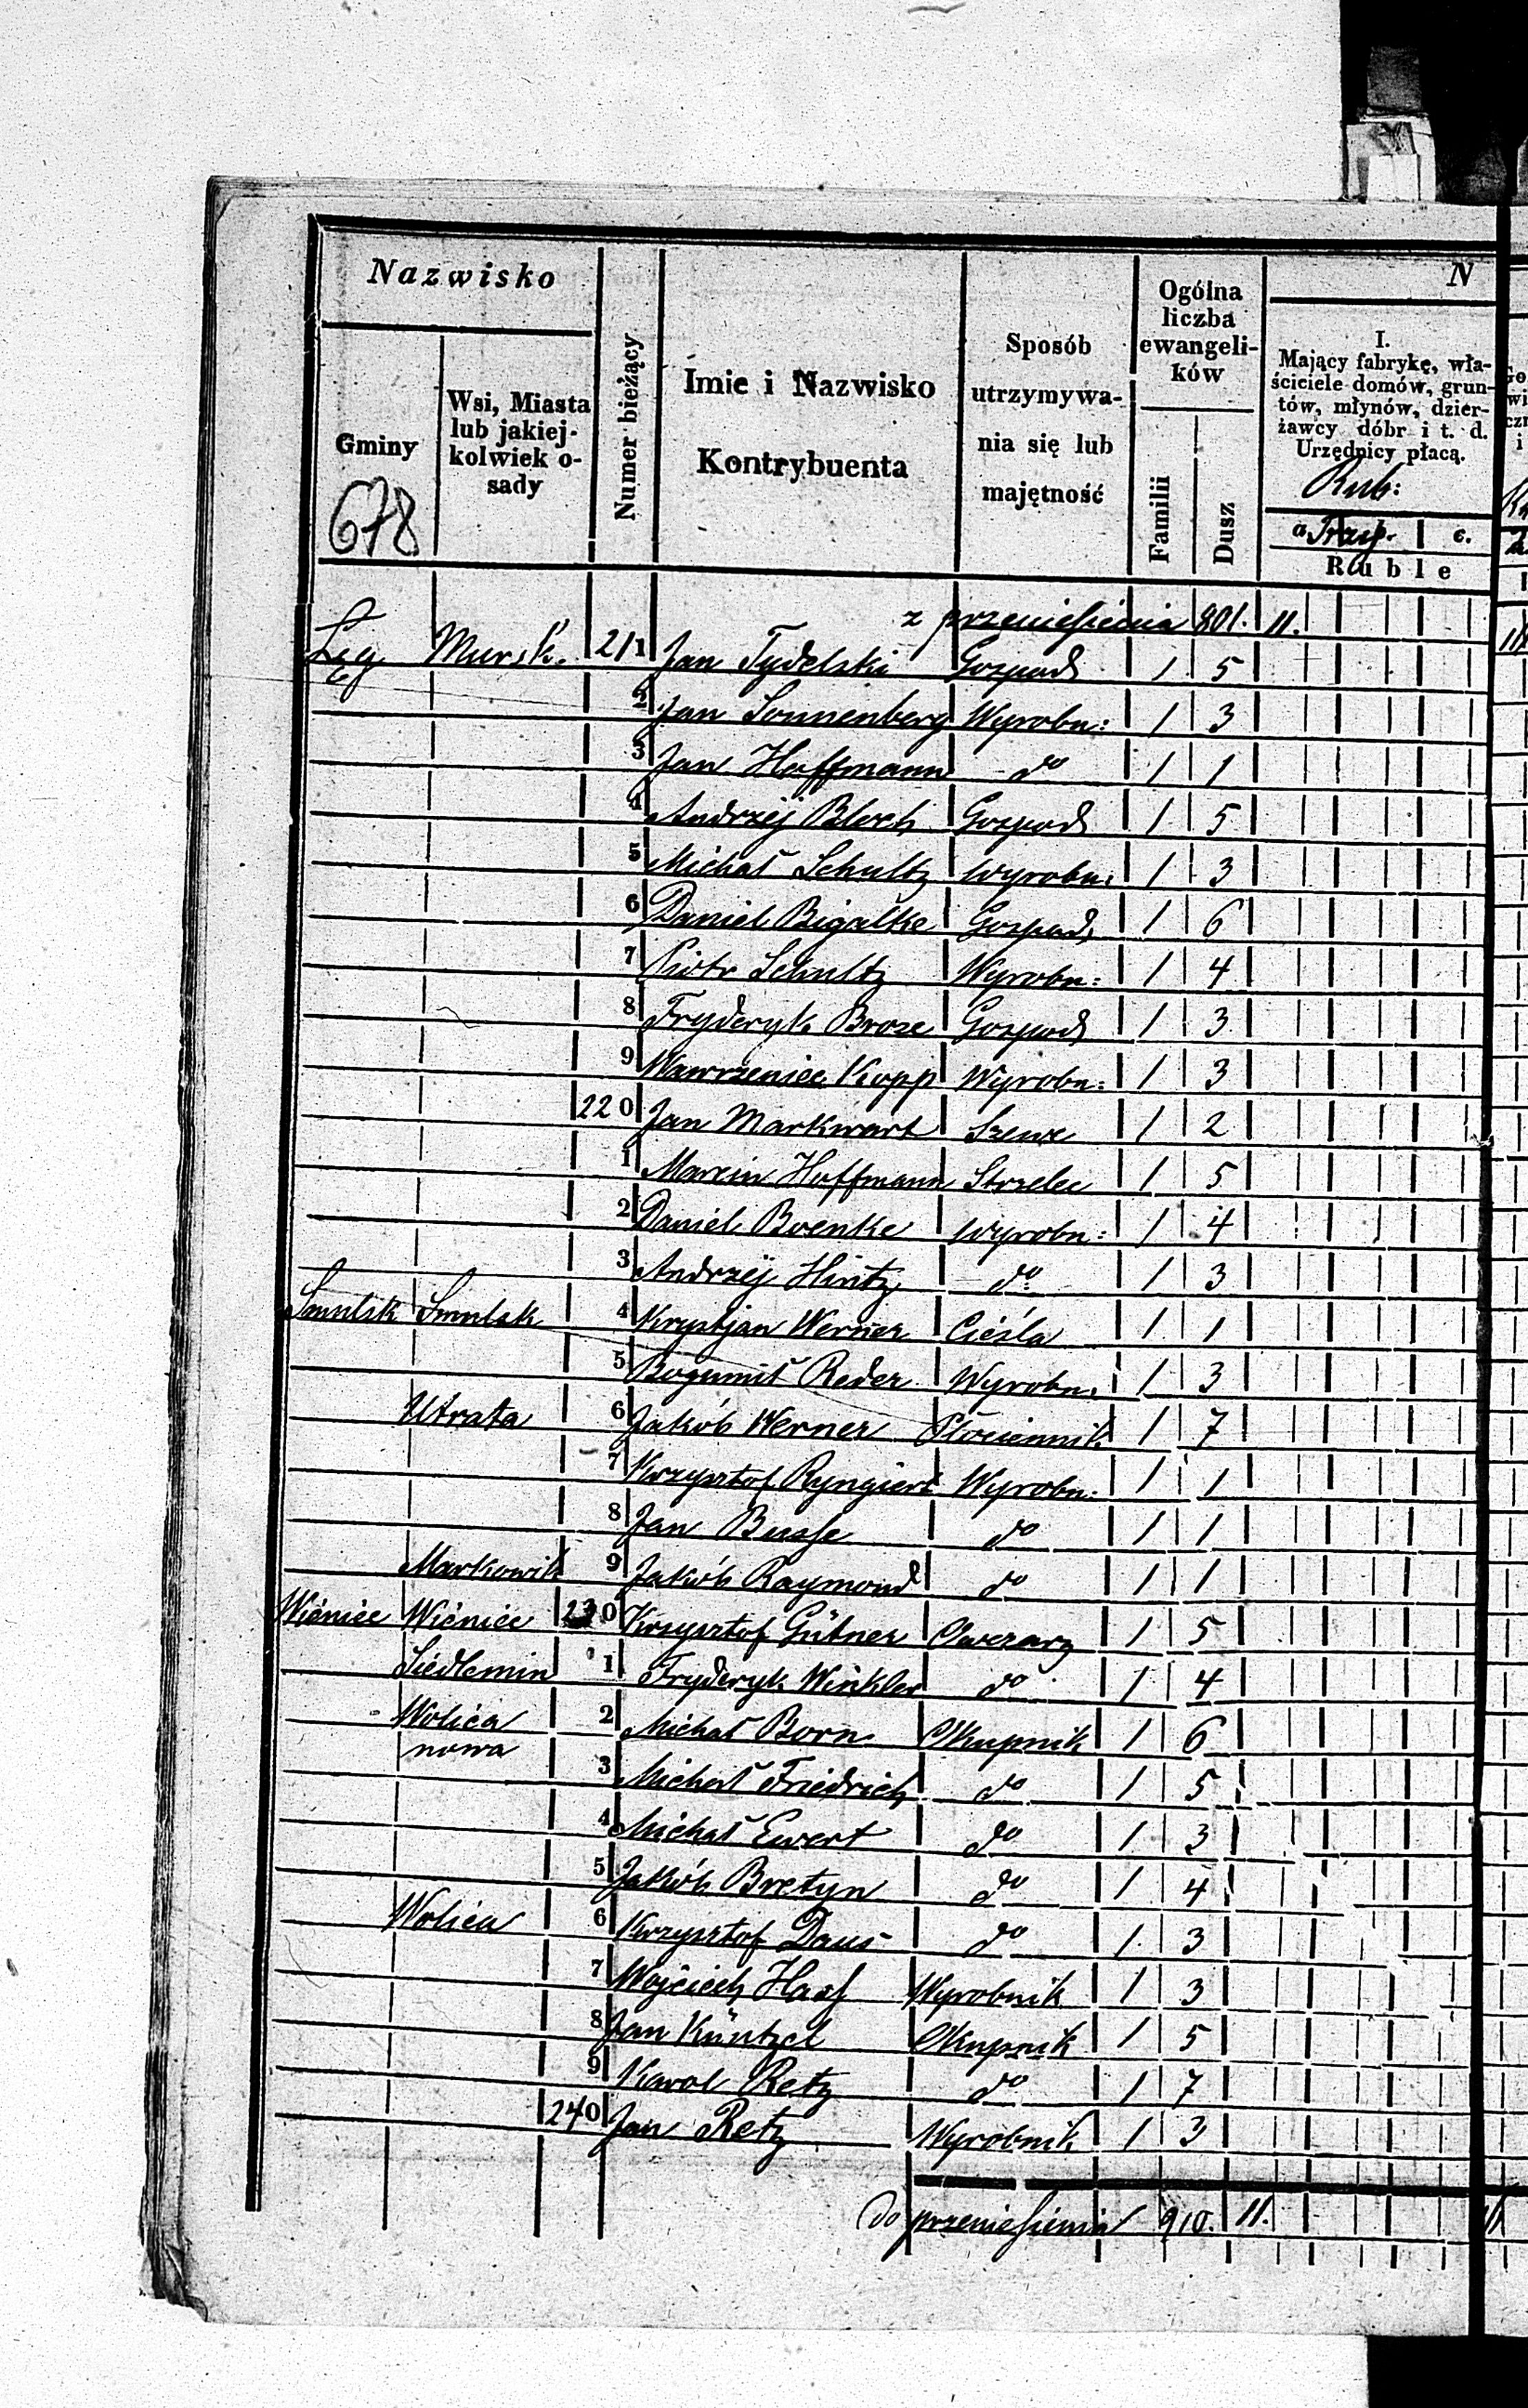 Nazwisko
Gminy
Wsi, Miasta
lub jakiej-
kolwiek o-
sady
678
Numer bieżący
Imie i Nazwisko
Kontrybuenta
Sposób
utrzymywa-
nia się lub
majętność
Ogólna
liczba
ewangeli-
ków
Familii
Dusz
N
I.
Mający fabrykę, wła-
ściciele domów, grun-
tów, młynów, dzier-
żawcy dóbr i t. d.
Urzędnicy płacą.
Rub:
a c.
Ruble
z przeniesienia 801. 11.
Łęg Mursk. 211 Jan Tydelski Gospod 1 5
2 Jan Sonnenberg Wyrobn: 1 3
3 Jan Hoffmann do 1 1
4 Andrzej Bloch Gospod 1 5
5 Michał Schultz Wyrobn: 1 3
6 Daniel Bigalke Gospod 1 6
7 Piotr Schultz Wyrobn: 1 4
8 Fryderyk Broze Gospod 1 3
9 Wawrzeniec Kopp Wyrobn: 1 3
220 Jan Markwart Szewc 1 2
1 Marcin Hoffmann Strzelec 1 5
2 Daniel Boenke Wyrobn: 1 4
3 Andrzej Hintz do 1 3
Smulsk Smulsk 4 Krystjan Werner Cieśla 1 1
5 Bogumił Reder Wyrobn: 1 3
Utrata 6 Jakób Werner Płóciennik 1 7
7 Krzysztof Wyrobn: 1 1
8 Jan Busse do 1 1
9 Jakób Raymond do 1 1
Wieniec Wieniec 230 Krzysztof Gütner Owczarz 1 5
Siedlemin 1 Fryderyk Winkler do 1 4
Wolica 2 Michał Born Okupnik 1 6
nowa
3 Michał Friedrich do 1 5
4 Michał Ewert do 1 3
5 Jakób Bretyn do 1 4
Wolica 6 Krzysztof Daus do 1 3
7 Wojciech Haas Wyrobnik 1 3
8 Jan Küntzel Okupnik 1 5
9 Karol Retz do 1 7
240 Jan Retz Wyrobnik 1 3
do przeniesienia 910. 11.